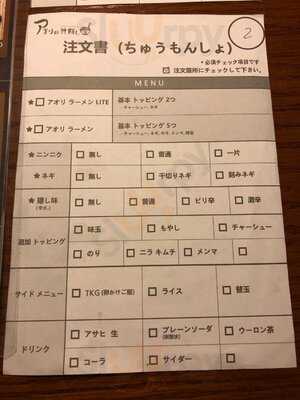 アオリの神隠し
2
注文書（ちゅうもんしょ）
* 必須チェック項目です
注文箇所にチェックして下さい。
MENU
★ アオリ ラーメン LITE 基本 トッピング 2つ
★ アオリ ラーメン 基本 トッピング 5つ
★ ニンニク 無し 普通 一片
★ ネギ 無し 千切りネギ 刻みネギ
★ 隠し味 無し 普通 ピリ辛 激辛
追加 トッピング 味玉 もやし チャーシュー
のり ニラ キムチ メンマ
サイド メニュー TKG (卵かけご飯) ライス 替玉
ドリンク アサヒ 生 プレーンソーダ ウーロン茶
コーラ サイダー